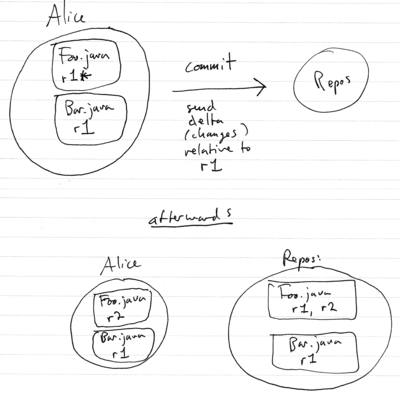 Alice
Foo.java
r1*
Bar.java
r1
commit
send
delta
(changes)
relative to
r1
Repos
afterwards
Alice
Foo.java
r2
Bar.java
r1
Repos:
Foo.java
r1, r2
Bar.java
r1